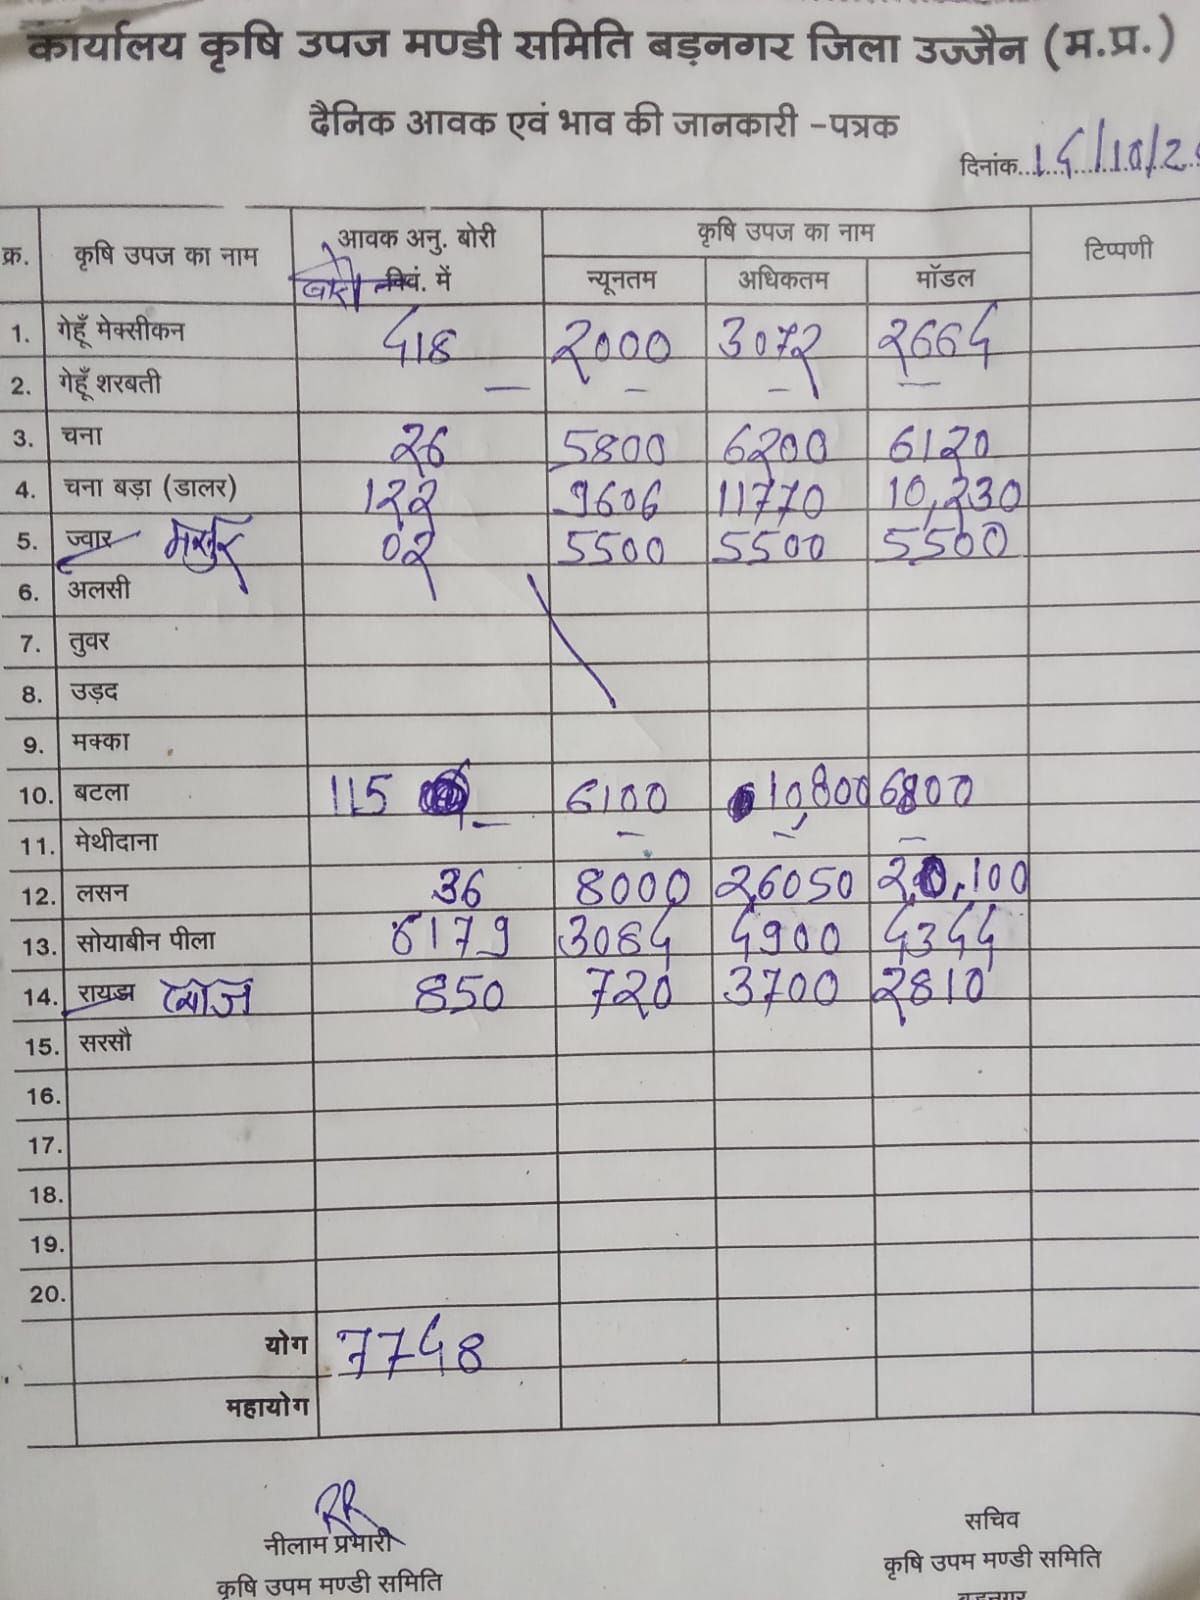 कार्यालय कृषि उपज मण्डी समिति बड़नगर जिला उज्जैन (म.प्र.)
दैनिक आवक एवं भाव की जानकारी -पत्रक
दिनांक...14/10/2
क्र. कृषि उपज का नाम आवक अनु. बोरी क्विं. में बोरी कृषि उपज का नाम टिप्पणी
न्यूनतम अधिकतम मॉडल
1. गेहूँ मेक्सीकन 418 2000 3072 2664
2. गेहूँ शरबती — — — —
3. चना 26 5800 6200 6120
4. चना बड़ा (डालर) 122 9606 11770 10,230
5. ज्वार मसुर 02 5500 5500 5500
6. अलसी
7. तुवर
8. उड़द
9. मक्का
10. बटला 115 6100 10,800 6800
11. मेथीदाना — — — —
12. लसन 36 8000 26050 20,100
13. सोयाबीन पीला 6179 3064 4900 4344
14. रायडा प्याज 850 720 3700 2810
15. सरसौ
16.
17.
18.
19.
20.
योग 7748
महायोग
नीलाम प्रभारी
कृषि उपम मण्डी समिति
सचिव
कृषि उपम मण्डी समिति
बड़नगर